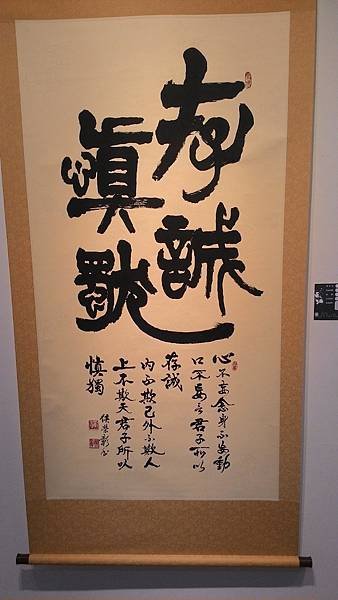 存誠
慎獨
心不妄念身不妄動
口不妄言君子所以
存誠
內不欺己外不欺人
上不欺天君子所以
慎獨
侯榮彩書